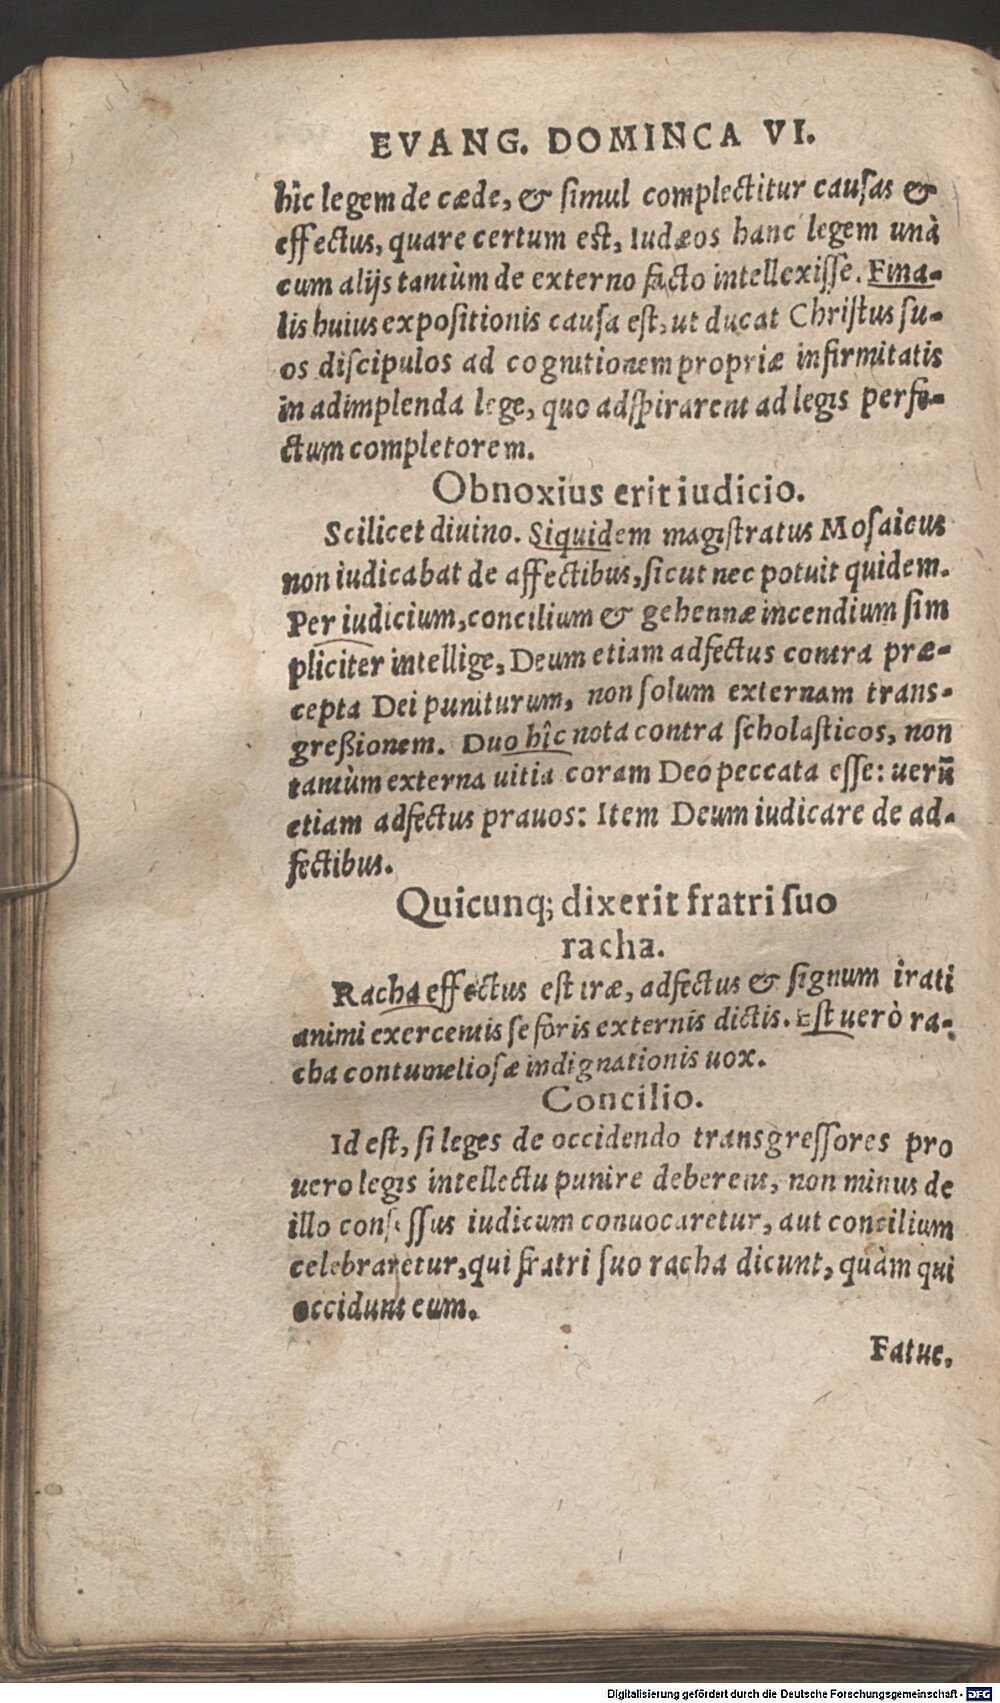 EVANG. DOMINCA VI.
hîc legem de cæde, & ſimul complectitur cauſas &
effectus, quare certum eſt, Iudæos hanc legem unà
cum alijs tantùm de externo facto intellexiſſe. Fina-
lis huius expoſitionis cauſa eſt, ut ducat Chriſtus ſu-
os diſcipulos ad cognitionem propriæ infirmitatis
in adimplenda lege, quo adſpirarent ad legis perfe-
ctum completorem.
Obnoxius erit iudicio.
Scilicet diuino. Siquidem magiſtratus Moſaicus
non iudicabat de affectibus, ſicut nec potuit quidem.
Per iudicium, concilium & gehennæ incendium ſim
pliciter intellige, Deum etiam adfectus contra præ-
cepta Dei puniturum, non ſolum externam trans-
greßionem. Duo hîc nota contra ſcholaſticos, non
tantùm externa uitia coram Deo peccata eſſe: uerū
etiam adfectus prauos: Item Deum iudicare de ad-
fectibus.
Quicunq; dixerit fratri ſuo
racha.
Racha effectus eſt iræ, adfectus & ſignum irati
animi exercentis ſe foris externis dictis. Eſt uerò ra-
cha contumelioſæ indignationis uox.
Concilio.
Id eſt, ſi leges de occidendo transgreſſores pro
uero legis intellectu punire deberent, non minus de
illo conſeſſus iudicum conuocaretur, aut concilium
celebraretur, qui fratri ſuo racha dicunt, quàm qui
occidunt eum.
Fatue.
Digitalisierung gefördert durch die Deutsche Forschungsgemeinschaft - DFG